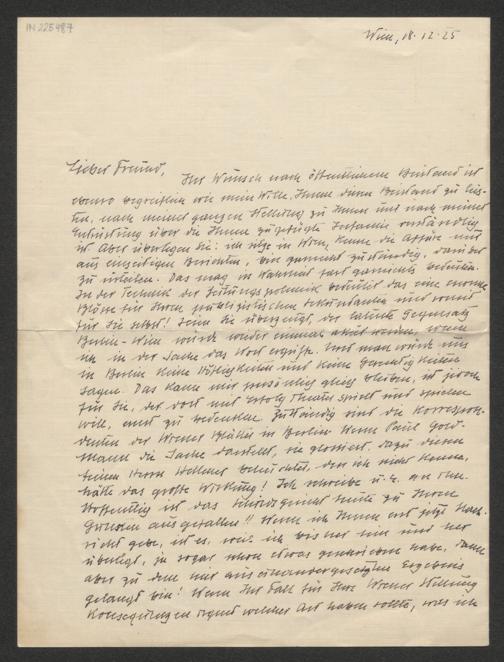 IN 225487
Wien, 18.12.25
Lieber Freund,
Ihr Wunsch nach öffentlichem Beistand ist
ebenso begreiflich wie mein Wille, Ihnen diesen Beistand zu leis-
ten, nach meiner ganzen Stellung zu Ihnen und nach meiner
Entrüstung über die Ihnen zugefügte Infamie verständlich
ist. Aber überlegen Sie: ich sitze in Wien, kenne die Affäre nur
aus einseitigen Berichten, bin garnicht zuständig, darüber
zu urteilen. Das mag in Wahrheit fast garnichts bedeuten.
In der Technik der Zeitungspolemik bedeutet das eine enorme
Blöße für Ihren publizistischen Sekundanten und somit
für Sie selbst! Seien Sie überzeugt, der latente Gegensatz
Berlin-Wien würde wieder einmal akut werden, wenn
ich in der Sache das Wort ergriffe. Und man würde uns
in Berlin keine Höflichkeiten und keine Gerechtigkeiten
sagen. Das kann mir persönlich gleich bleiben, ist jedoch
für Sie, der dort mit Erfolg Theater spielt und spielen
will, ernst zu bedenken. Zuständig sind die Korrespon-
denten der Wiener Blätter in Berlin. Wenn Paul Gold-
mann die Sache darstellt, sie glossiert, dazu diesen
feinen Herrn beleuchtet, den ich nicht kenne,
hätte das große Wirkung! Ich schreibe u. E. an ihn.
Hoffentlich ist das Schiedsgericht heute zu Ihren
Gunsten ausgefallen!! Wenn ich Ihnen erst jetzt Nach-
richt gebe, ist es, weil ich bisher hin und her
überlegt, ja sogar schon etwas geschrieben habe, dann
aber zu dem mir auseinandergesetzten Ergebnis
gelangt bin! Wenn Ihr Fall für Ihre Wiener Stellung
Konsequenzen irgend welcher Art haben sollte, was ich